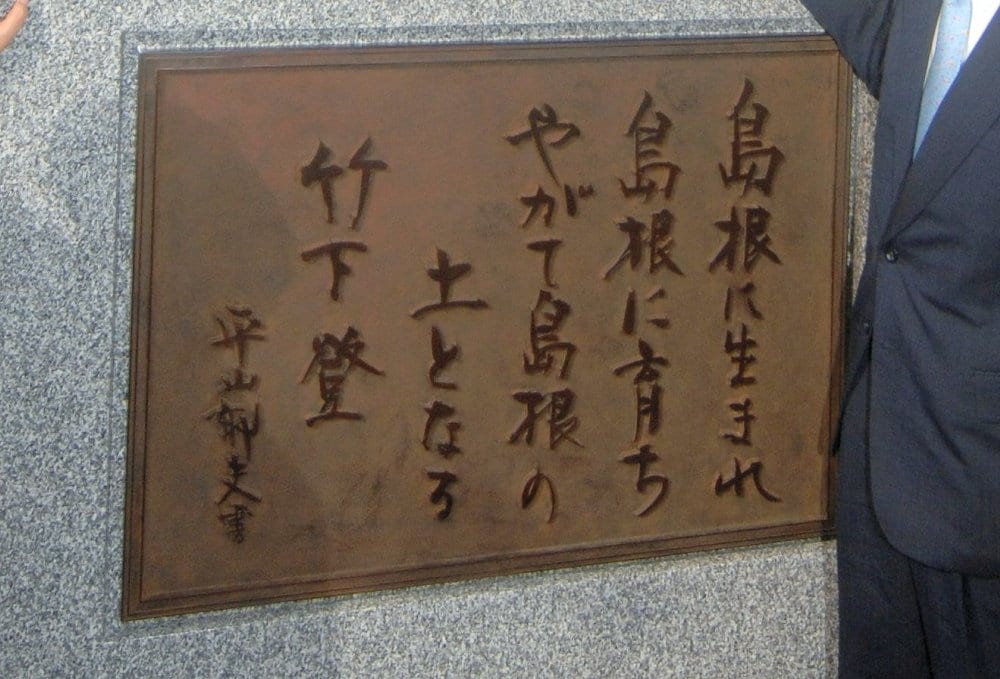 島根に生まれ
島根に育ち
やがて島根の
土となる
竹下登
平山郁夫書